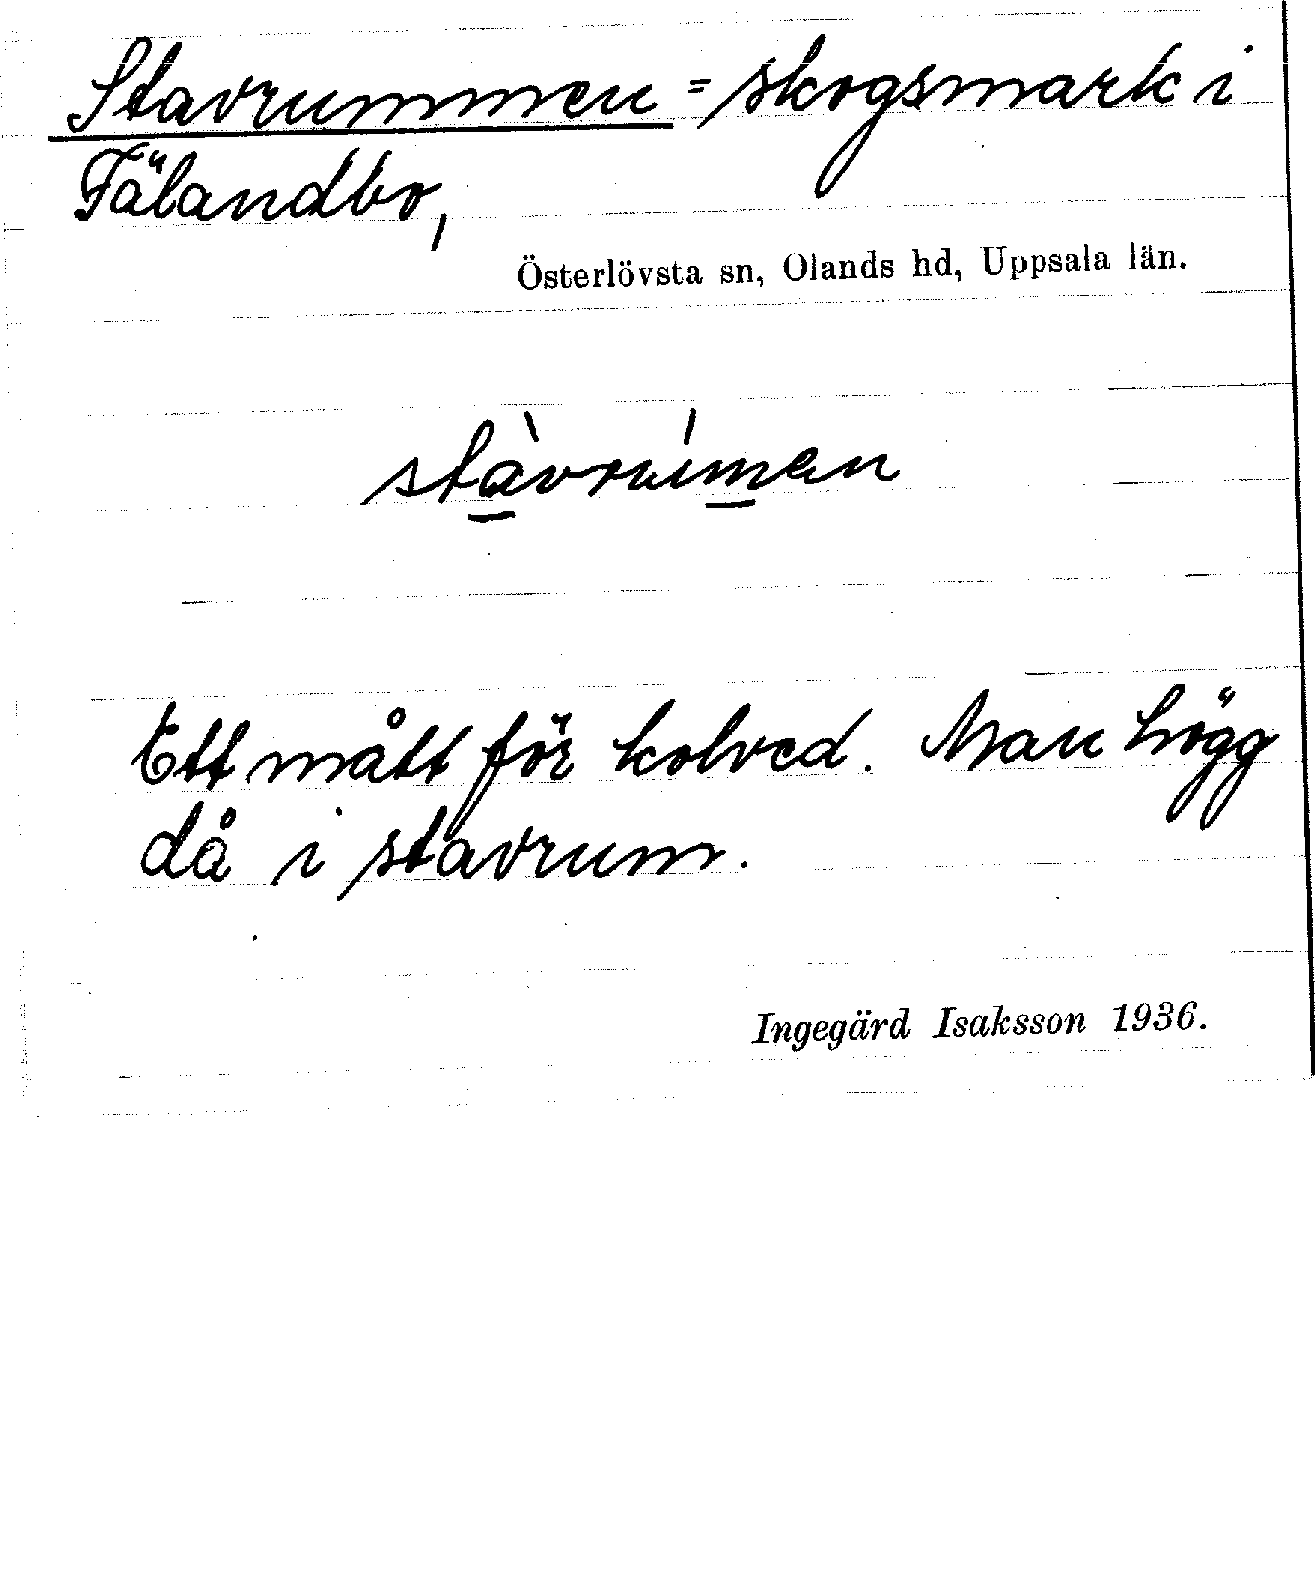 Stavrummen = skogsmark i
Fälandbo,
Österlövsta sn, Olands hd, Uppsala län.
stàvrúmen
Ett mått för kolved. Man högg
då i stavrum.
Ingegärd Isaksson 1936.